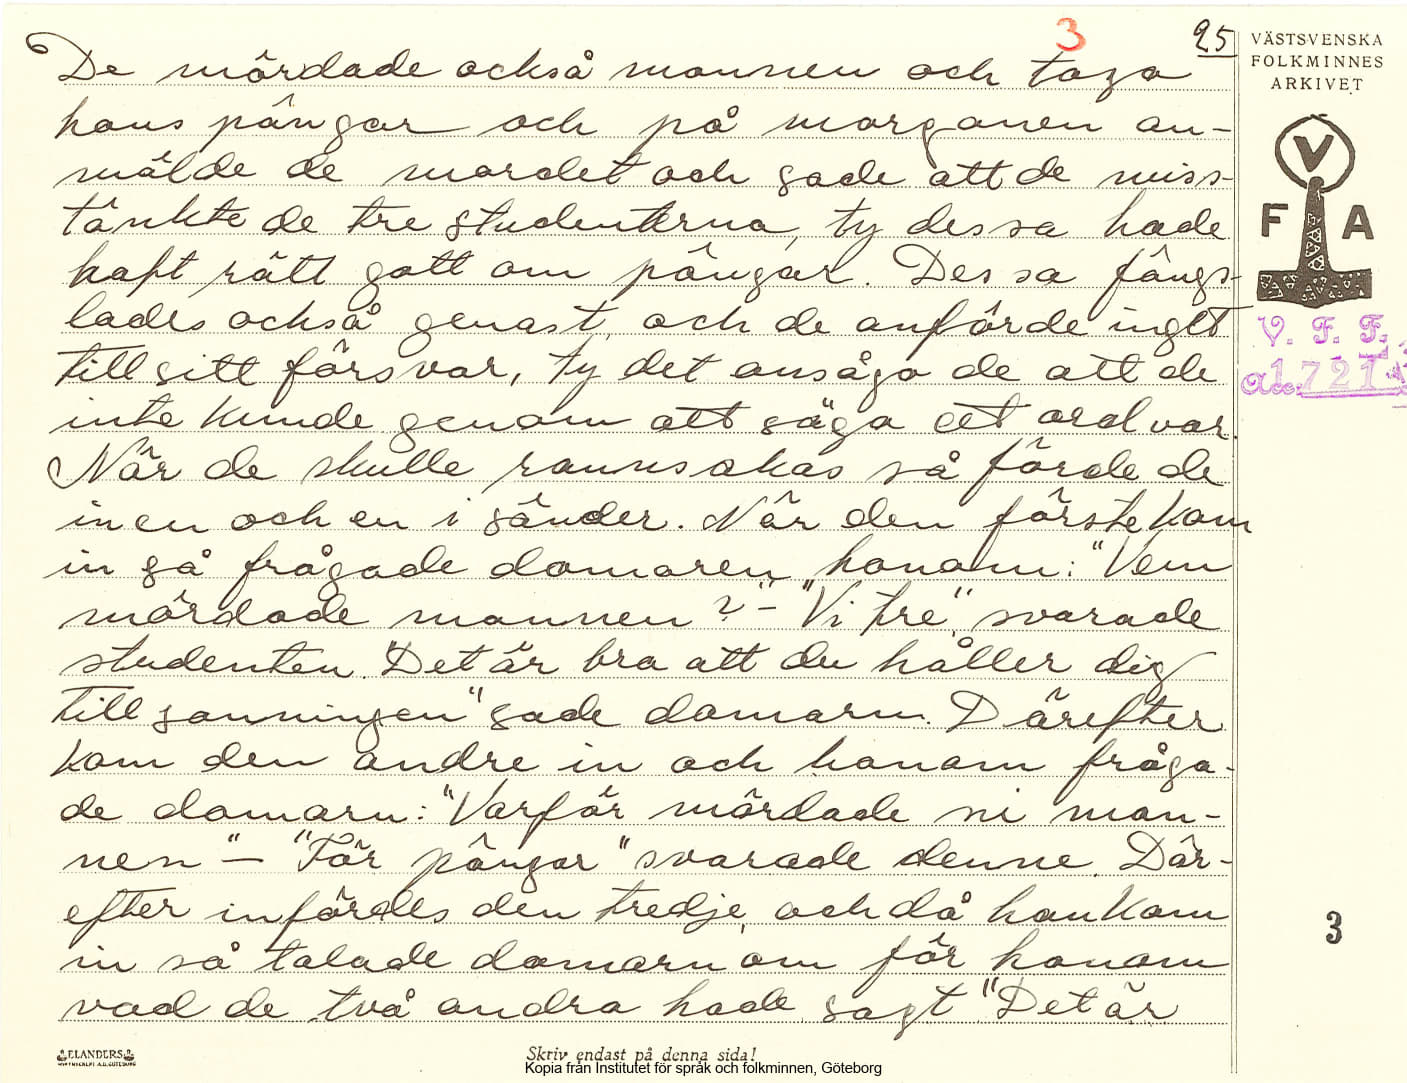 3
25
VÄSTSVENSKA
FOLKMINNES
ARKIVET
V
F A
V. F. F.
Acc. 1721
De mördade också mannen och toga
hans pängar och på morgonen an-
mälde de mordet och sade att de miss-
tänkte de tre studenterna, ty dessa hade
haft rätt gott om pängar. Dessa fängs-
lades också genast, och de anförde inget
till sitt försvar, ty det ansågo de att de
inte kunde genom att säga ett ord var.
När de skulle rannsakas så förde de
in en och en i sänder. När den förste kom
in så frågade domaren honom: "Vem
mördade mannen?" – "Vi tre", svarade
studenten. "Det är bra att du håller dig
till sanningen" sade domarn. Därefter
kom den andre in och honom fråga-
de domarn: "Varför mördade ni man-
nen" – "För pängar" svarade denne. Där-
efter infördes den tredje, och då han kom
in så talade domarn om för honom
vad de två andra hade sagt "Det är
3
ELANDERS
Skriv endast på denna sida!
Kopia från Institutet för språk och folkminnen, Göteborg